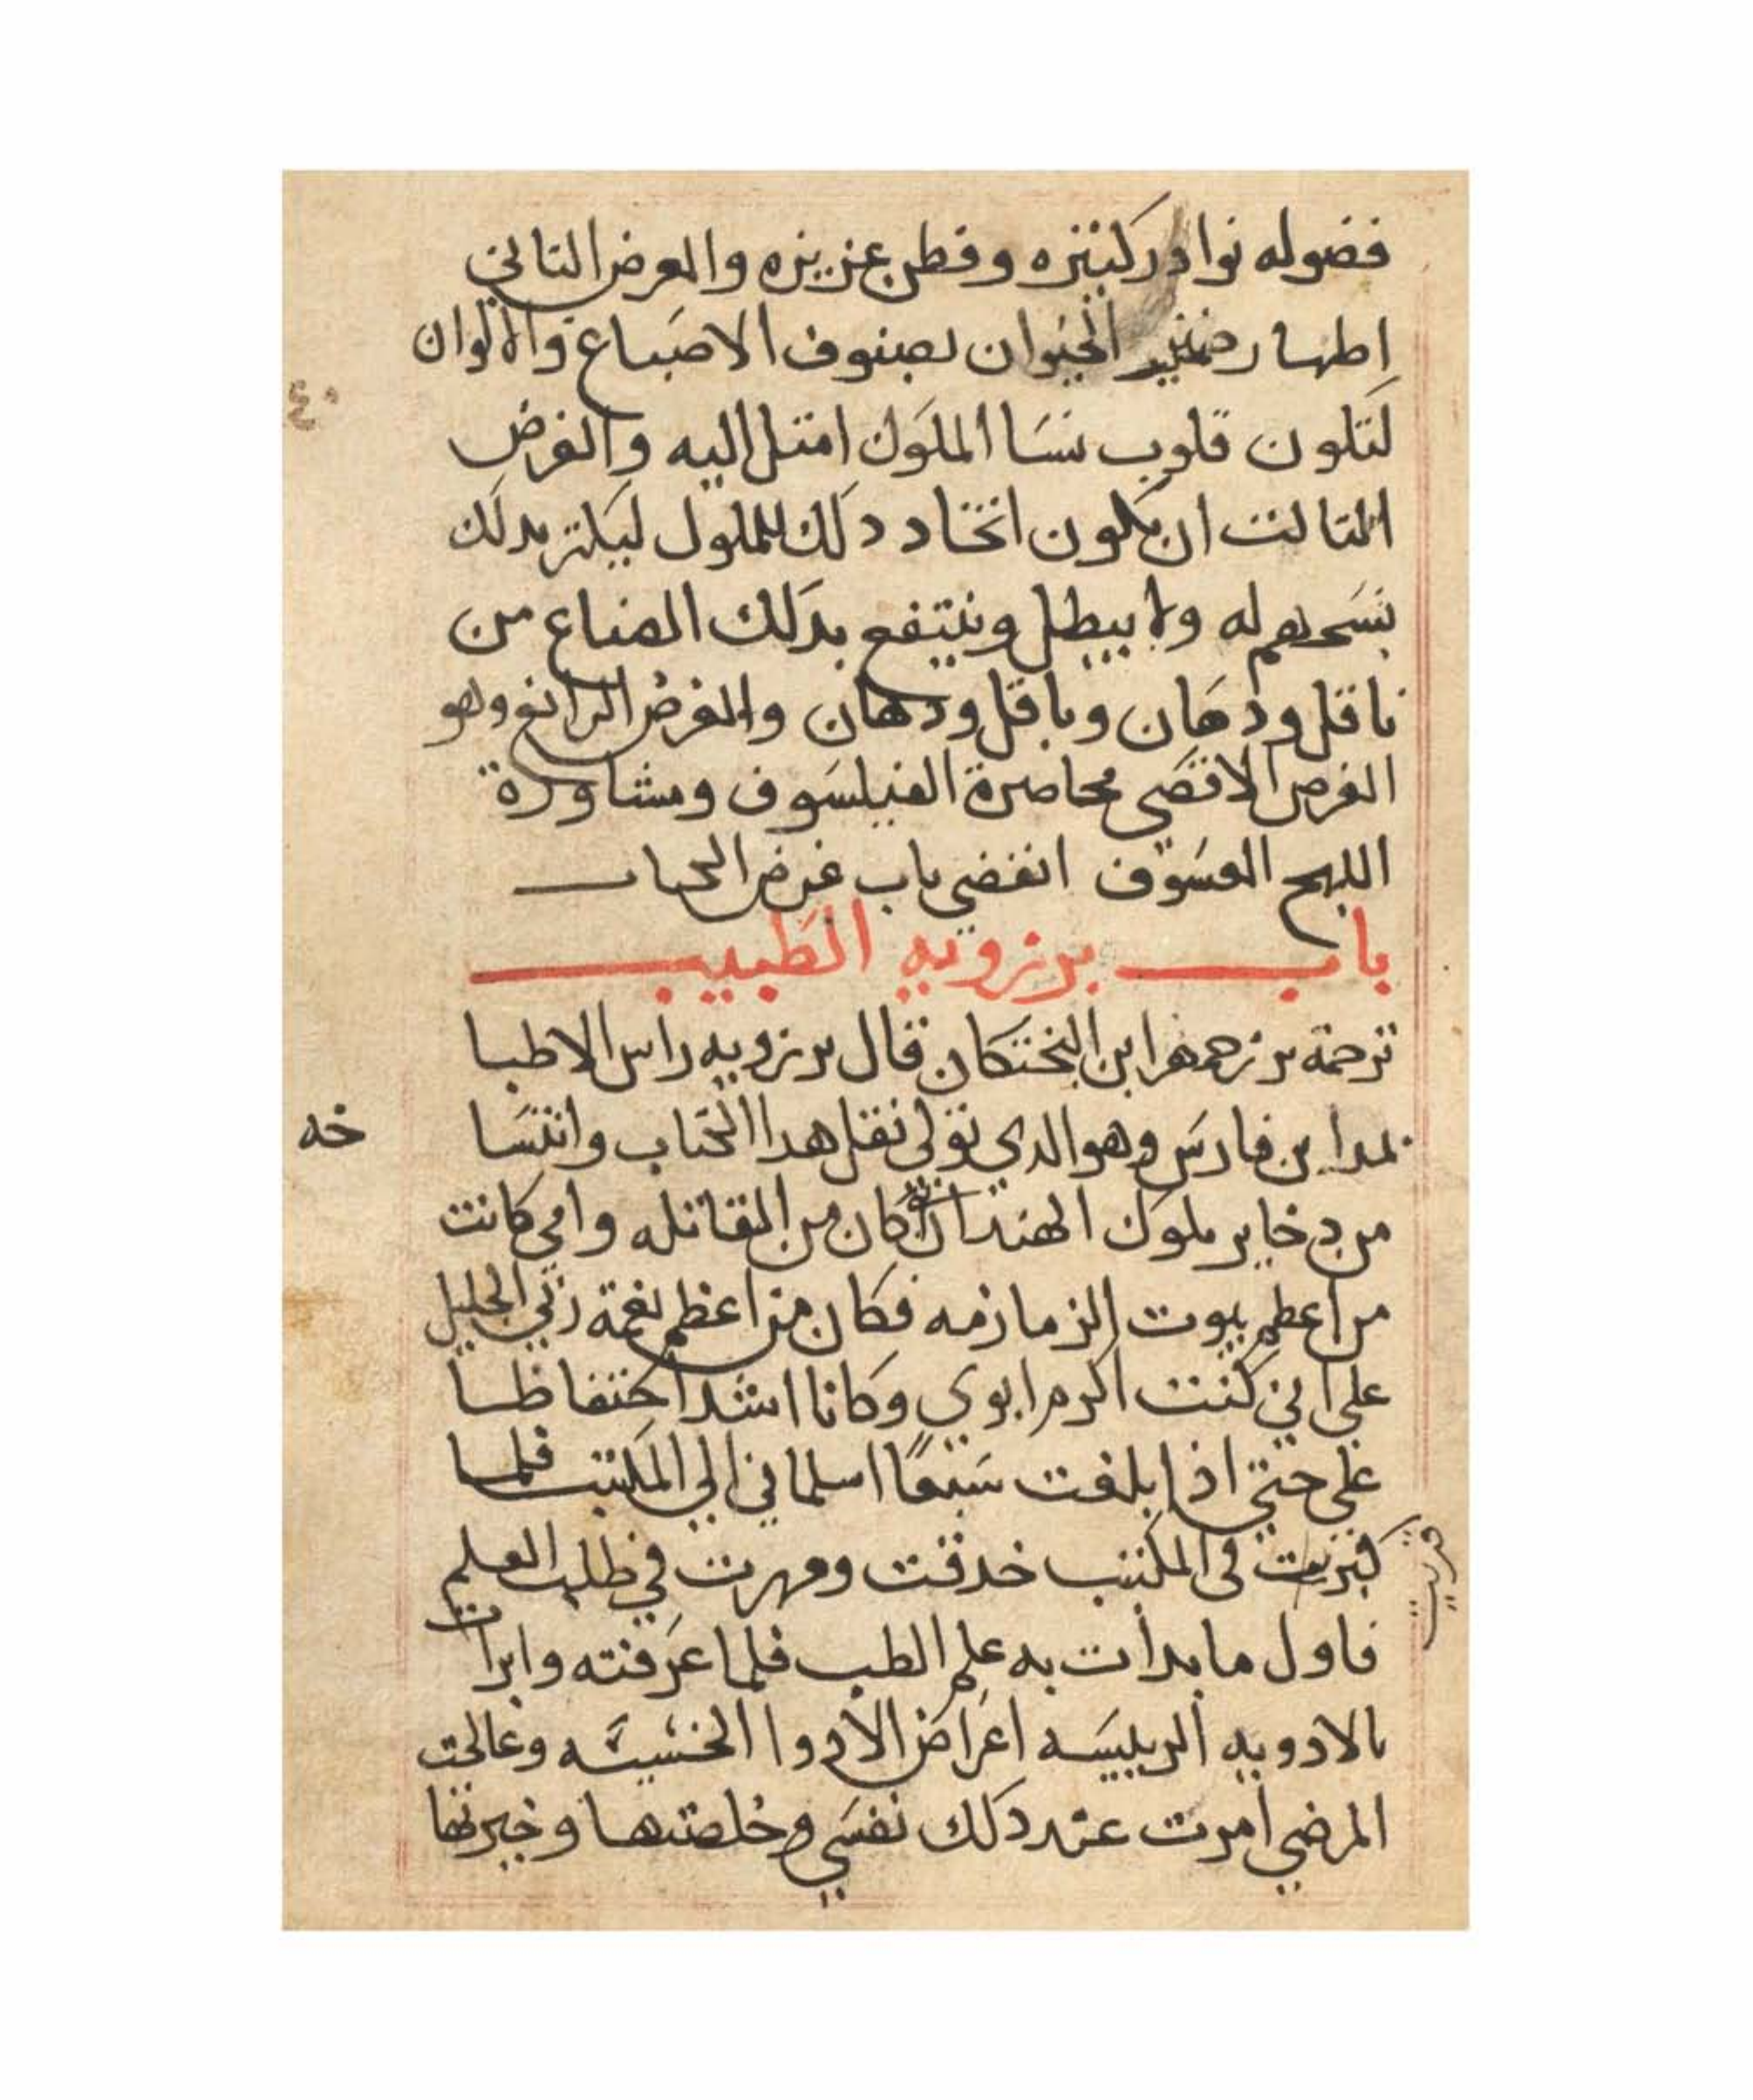 فضوله نوادر كثيره وفطن عزيزه والعرض الثاني
اظهار ضمير الحيوان بصنوف الاصباغ والالوان
لتلون قلوب نسا الملوك امثل اليه والغرض
الثالث ان يكون اتخاد دلك للملوك ليكثر بدلك
نسحهم له ولا يبطل وينتفع بدلك الصناع من
ناقل ودهان وباقل ودهان والغرض الرابع وهو
الغرض الاقصى محاصرة الفيلسوف ومشاورة
اللهج انقضي باب غرض الكتاب
باب برزويه الطبيب
ترجمة برزجمهر ابن البختكان قال برزويه راس الاطبا
بن فارس وهو الدي تولي نقل هدا الكتاب وانتسا
خه
من دخاير ملوك الهند ان كان من المقاتله وامي كانت
من اعظم بيوت الزمازمه فكان من اعظم نعمة ربي الجليل
علي اني كنت اكرم ابوي وكانا اشد احتفاظا
علي حتي اذا بلغت سبعًا اسلماني الي المكتب فلما
كبرت في المكتب حدقت ومهرت في طلب العلم
تربيت
فاول ما بدات به علم الطب فلما عرفته وابرات
بالادويه الرييسه اعراض الادوا الخسيسه وعالجت
المرضي امرت عند دلك نفسي وخلصتها وخيرتها
٤٠